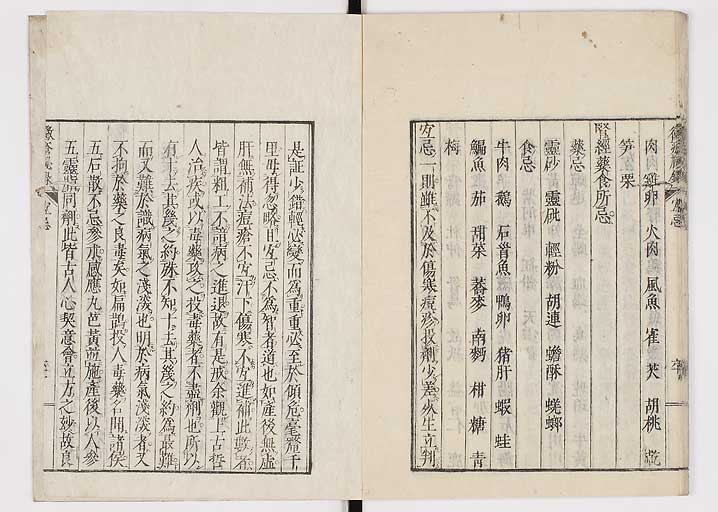 肉 肉 雞卵 火肉 風魚 雀 芡 胡桃
笋 栗
腎經藥食所忌
藥忌
靈砂 靈砒 輕粉 胡連 蟾酥 蜣螂
食忌
牛肉 鵝 石首魚 鴨卵 猪肝 蝦 蛙
鯿魚 茄 甜菜 蕎麥 南麪 柑 糖 青
梅
宜忌一則雖不及於傷寒痘疹投劑少差死生立判
是証少錯輕必變而為重重必至於傾危毫釐千
里毋得忽畧用宜忌不為智者道也如産後無虛
肝無補法痘瘡不宜汗下傷寒不宜進補此數者
皆謂粗工不諳病之進退故有是戒余觀上古哲
人治疾或以毒藥攻之投毒藥者不盡劑也所以
有十去其幾之約殊不知十去其幾之約為最難
而又難於識病氣之淺深也明於病氣淺深者又
不拘於藥之良毒矣如扁鵲投人毒藥名聞諸侯
五石散不忌參朮感應丸芭黃並施產後以人參
五靈脂同劑此皆古人心契意會立方之妙故良